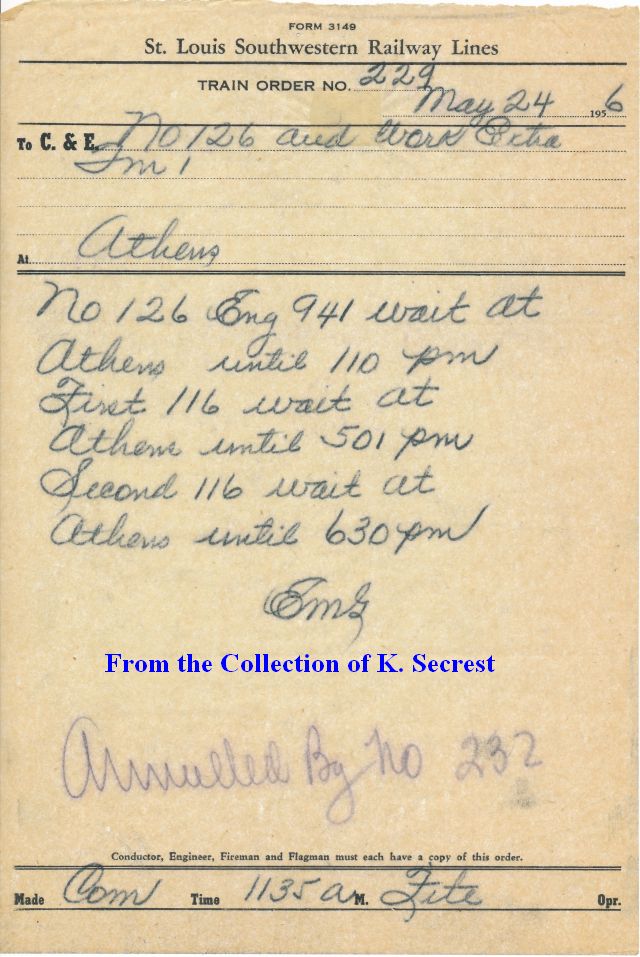 FORM 3149
St. Louis Southwestern Railway Lines
TRAIN ORDER NO. 229
May 24 1956
To C. & E. No 126 and Work Extra
At Athens
No 126 Eng 941 wait at
Athens until 110 pm
First 116 wait at
Athens until 501 pm
Second 116 wait at
Athens until 630 pm
EMG
From the Collection of K. Secrest
Annulled By No 232
Conductor, Engineer, Fireman and Flagman must each have a copy of this order.
Made Com Time 1135 a M. Fite Opr.